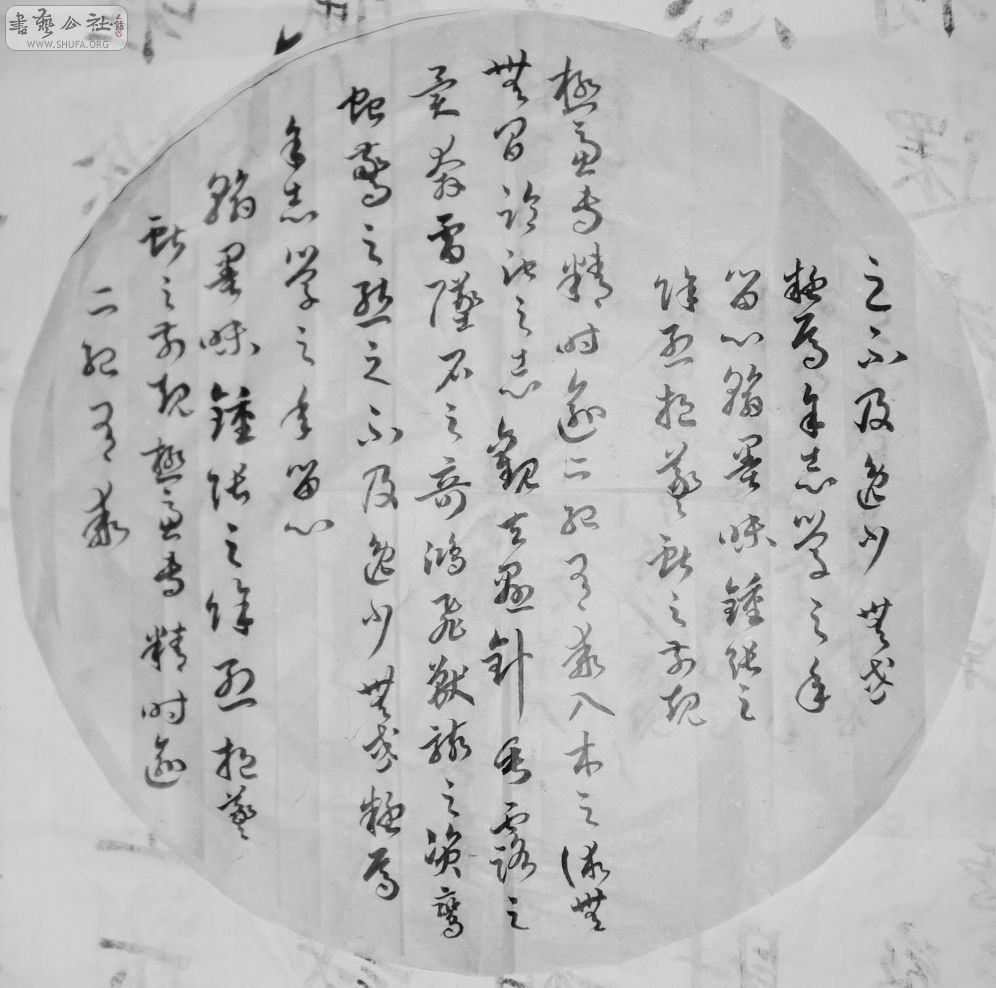 書藝公社
WWW.SHUFA.ORG
之不及逸少無或
疑焉余志學之年
留心翰墨味鍾張之
餘烈挹羲獻之前規
極慮專精時逾二紀有乖入木之術無
無間臨池之志觀夫懸針垂露之
異奔雷墜石之奇鴻飛獸駭之資鸞
蛇驚之態之不及逸少無或疑焉
余志學之年留心
翰墨味鍾張之餘烈挹羲
獻之前規極慮專精時逾
二紀有乖